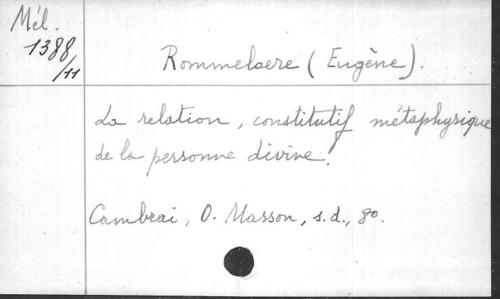 Mél.
1388
/11
Rommelaere (Eugène).
La relation, constitutif métaphysique
de la personne divine.
Cambrai, O. Masson, s.d., 8o.